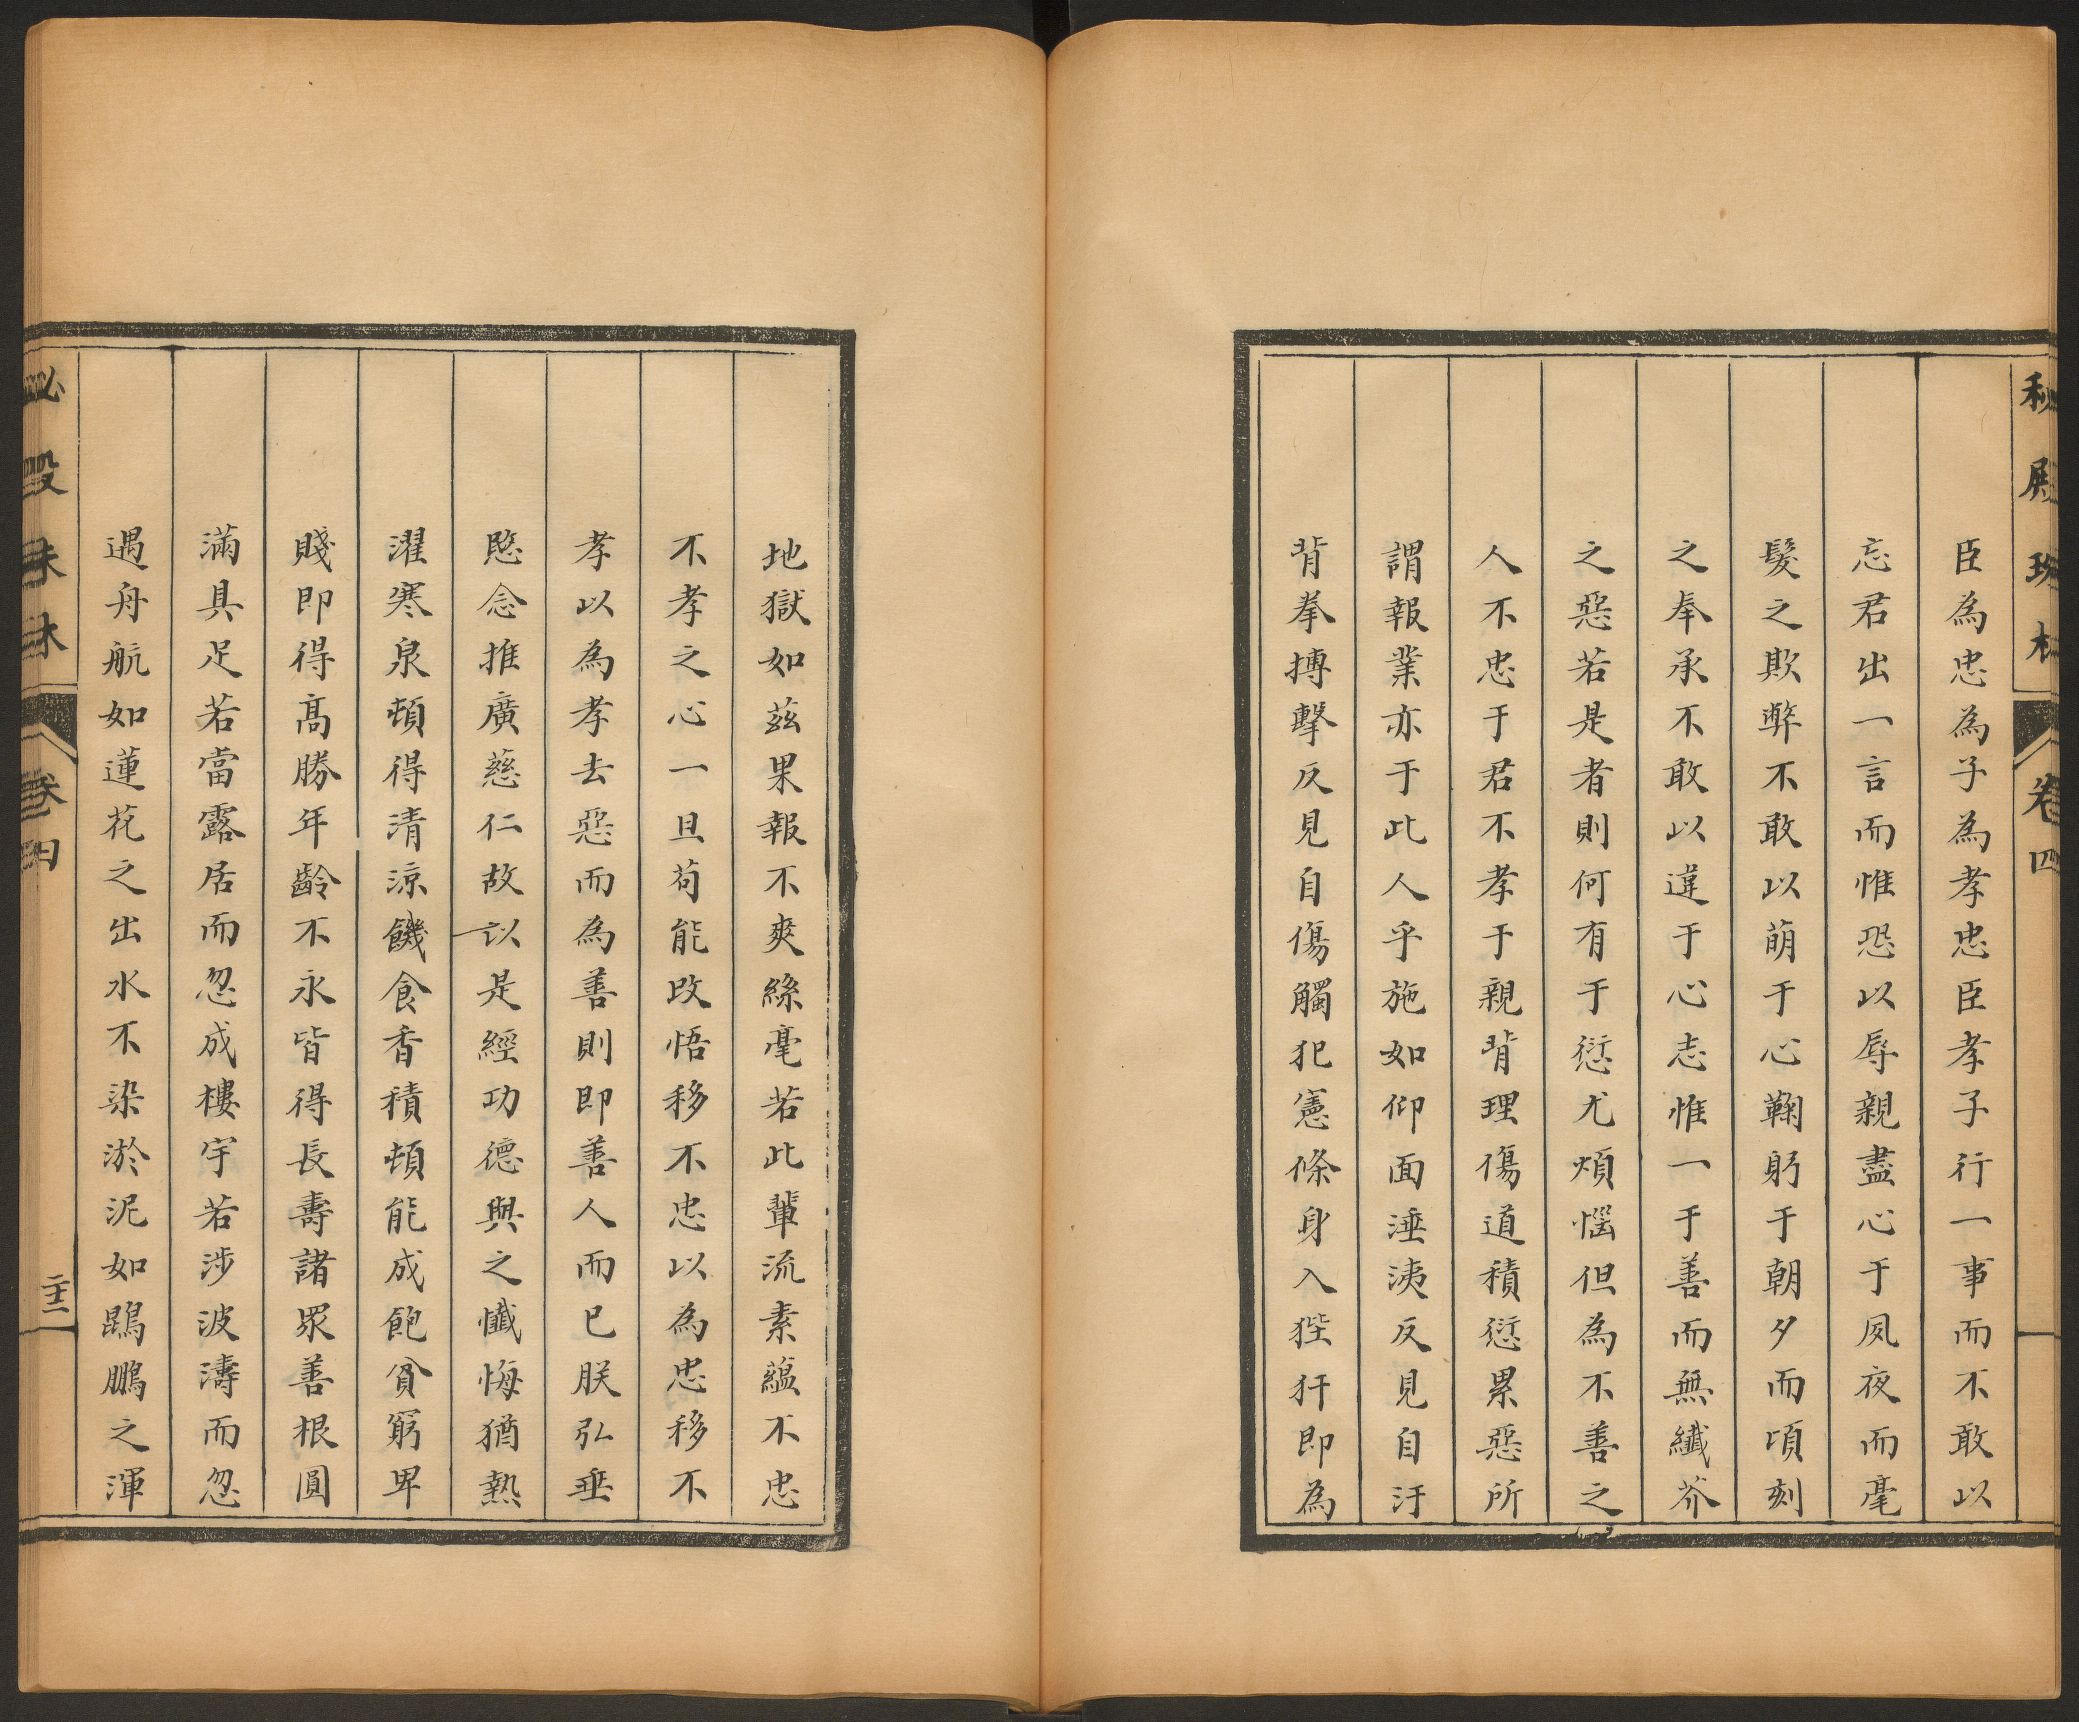 秘殿珠林
卷四
臣為忠為子為孝忠臣孝子行一事而不敢以
忘君出一言而惟恐以辱親盡心于夙夜而毫
髮之欺弊不敢以萌于心鞠躬于朝夕而頃刻
之奉承不敢以違于心志惟一于善而無纖芥
之惡若是者則何有于愆尤煩惱但為不善之
人不忠于君不孝于親背理傷道積愆累惡所
謂報業亦于此人乎施如仰面涶洟反見自汙
背拳搏擊反見自傷觸犯憲條身入狴犴即為
地獄如茲果報不爽絲毫若此輩流素蘊不忠
不孝之心一旦苟能改悟移不忠以為忠移不
孝以為孝去惡而為善則即善人而已朕弘垂
愍念推廣慈仁故以是經功德與之懺悔猶熱
濯寒泉頓得清涼饑食香積頓能成飽貧窮卑
賤即得高勝年齡不永皆得長壽諸眾善根圓
滿具足若當露居而忽成樓宇若涉波濤而忽
遇舟航如蓮花之出水不染淤泥如鵾鵬之渾
秘殿珠林
卷四
二十二